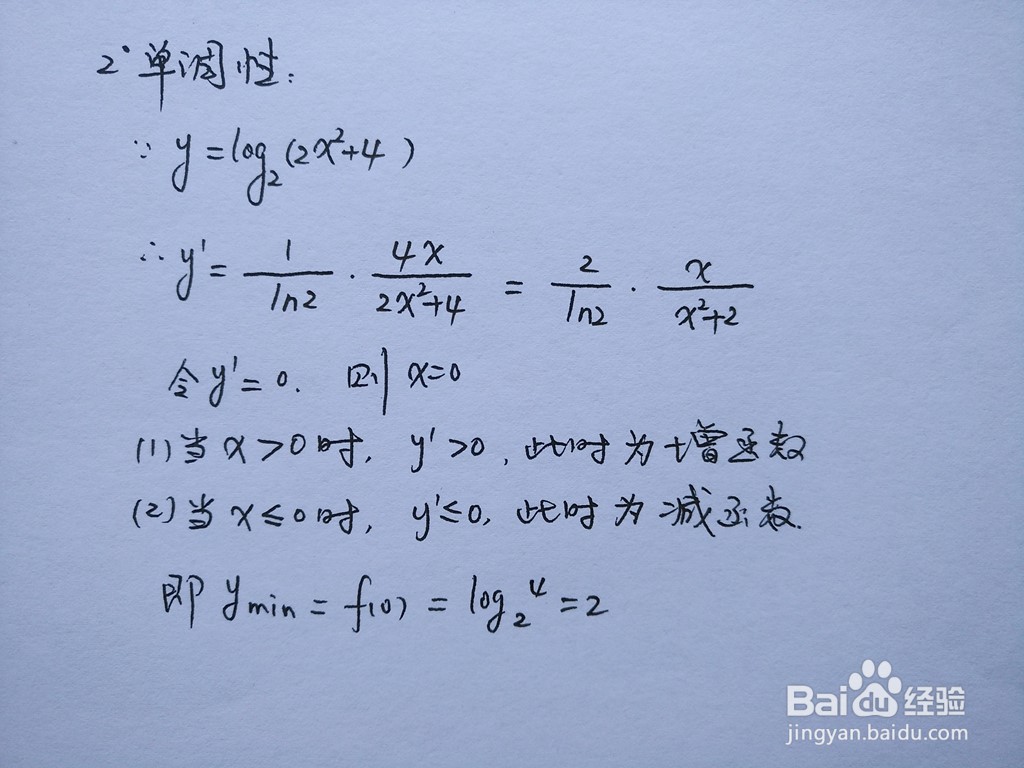 2° 单调性:
∵ y = log₂(2x²+4)
∴ y' = 1/ln2 · 4x/(2x²+4) = 2/ln2 · x/(x²+2)
令 y' = 0. 则 x=0
(1) 当 x>0 时, y'>0, 此时为增函数
(2) 当 x≤0 时, y'≤0, 此时为减函数.
即 y min = f(0) = log₂4 = 2
Baidu 经验
jingyan.baidu.com